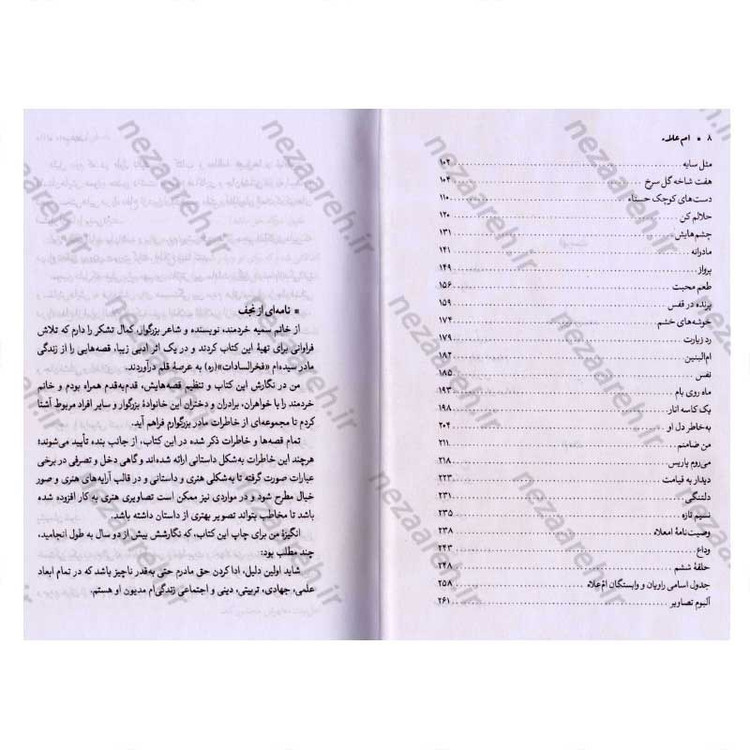 ۸ ■ ام‌علاء
مثل سایه ۱۰۲
هفت شاخه گل سرخ ۱۰۴
دست‌های کوچک حسناء ۱۱۰
حلالم کن ۱۲۰
چشم‌هایش ۱۳۱
مادرانه ۱۴۱
پرواز ۱۴۹
طعم محبت ۱۵۶
پرنده در قفس ۱۵۹
خوشه‌های خشم ۱۷۴
رد زیارت ۱۷۹
ام‌البنین ۱۸۲
نفس
ماه روی بام ۱۹۳
یک کاسه انار ۱۹۸
به‌خاطر دل او ۲۰۴
من ضامنم ۲۱۱
می‌روم پاریس ۲۱۸
دیدار به قیامت ۲۲۳
دلتنگی ۲۳۱
نسیم تازه ۲۳۵
وصیت‌نامهٔ امعلاء ۲۳۸
وداع ۲۴۳
حلقهٔ ششم ۲۴۸
جدول اسامی راویان و وابستگان ام‌علاء ۲۵۸
آلبوم تصاویر ۲۶۱
■ نامه‌ای از نجف
از خانم سمیه خردمند، نویسنده و شاعر بزرگوار، کمال تشکر را دارم که تلاش
فراوانی برای تهیهٔ این کتاب کردند و در یک اثر ادبی زیبا، قصه‌هایی را از زندگی
مادر سیده‌ام «فخرالسادات»(ره) به عرصهٔ قلم درآوردند.
من در نگارش این کتاب و تنظیم قصه‌هایش، قدم‌به‌قدم همراه بودم و خانم
خردمند را با خواهران، برادران و دختران این خانوادهٔ بزرگوار و سایر افراد مربوط آشنا
کردم تا مجموعه‌ای از خاطرات مادر بزرگوارم فراهم آید.
تمام قصه‌ها و خاطرات ذکر شده در این کتاب، از جانب بنده تأیید می‌شوند؛
هرچند این خاطرات به‌شکل داستانی ارائه شده‌اند و گاهی دخل و تصرفی در برخی
عبارات صورت گرفته تا به‌شکلی هنری و داستانی و در قالب آرایه‌های هنری و صور
خیال مطرح شود و در مواردی نیز ممکن است تصاویری هنری به کار افزوده شده
باشد تا مخاطب بتواند تصویر بهتری از داستان داشته باشد.
انگیزهٔ من برای چاپ این کتاب، که نگارشش بیش از دو سال به طول انجامید،
چند مطلب بود:
شاید اولین دلیل، ادا کردن حق مادرم حتی به‌قدر ناچیز باشد که در تمام ابعاد
علمی، جهادی، تربیتی، دینی و اجتماعی زندگی‌ام مدیون او هستم.
nezaareh.ir
nezaareh.ir
nezaareh.ir
nezaareh.ir
nezaareh.ir
nezaareh.ir
nezaareh.ir
nezaareh.ir